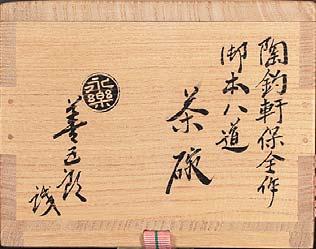 陶鈞軒保全作
御本八道
茶碗
永樂
善五郎
識